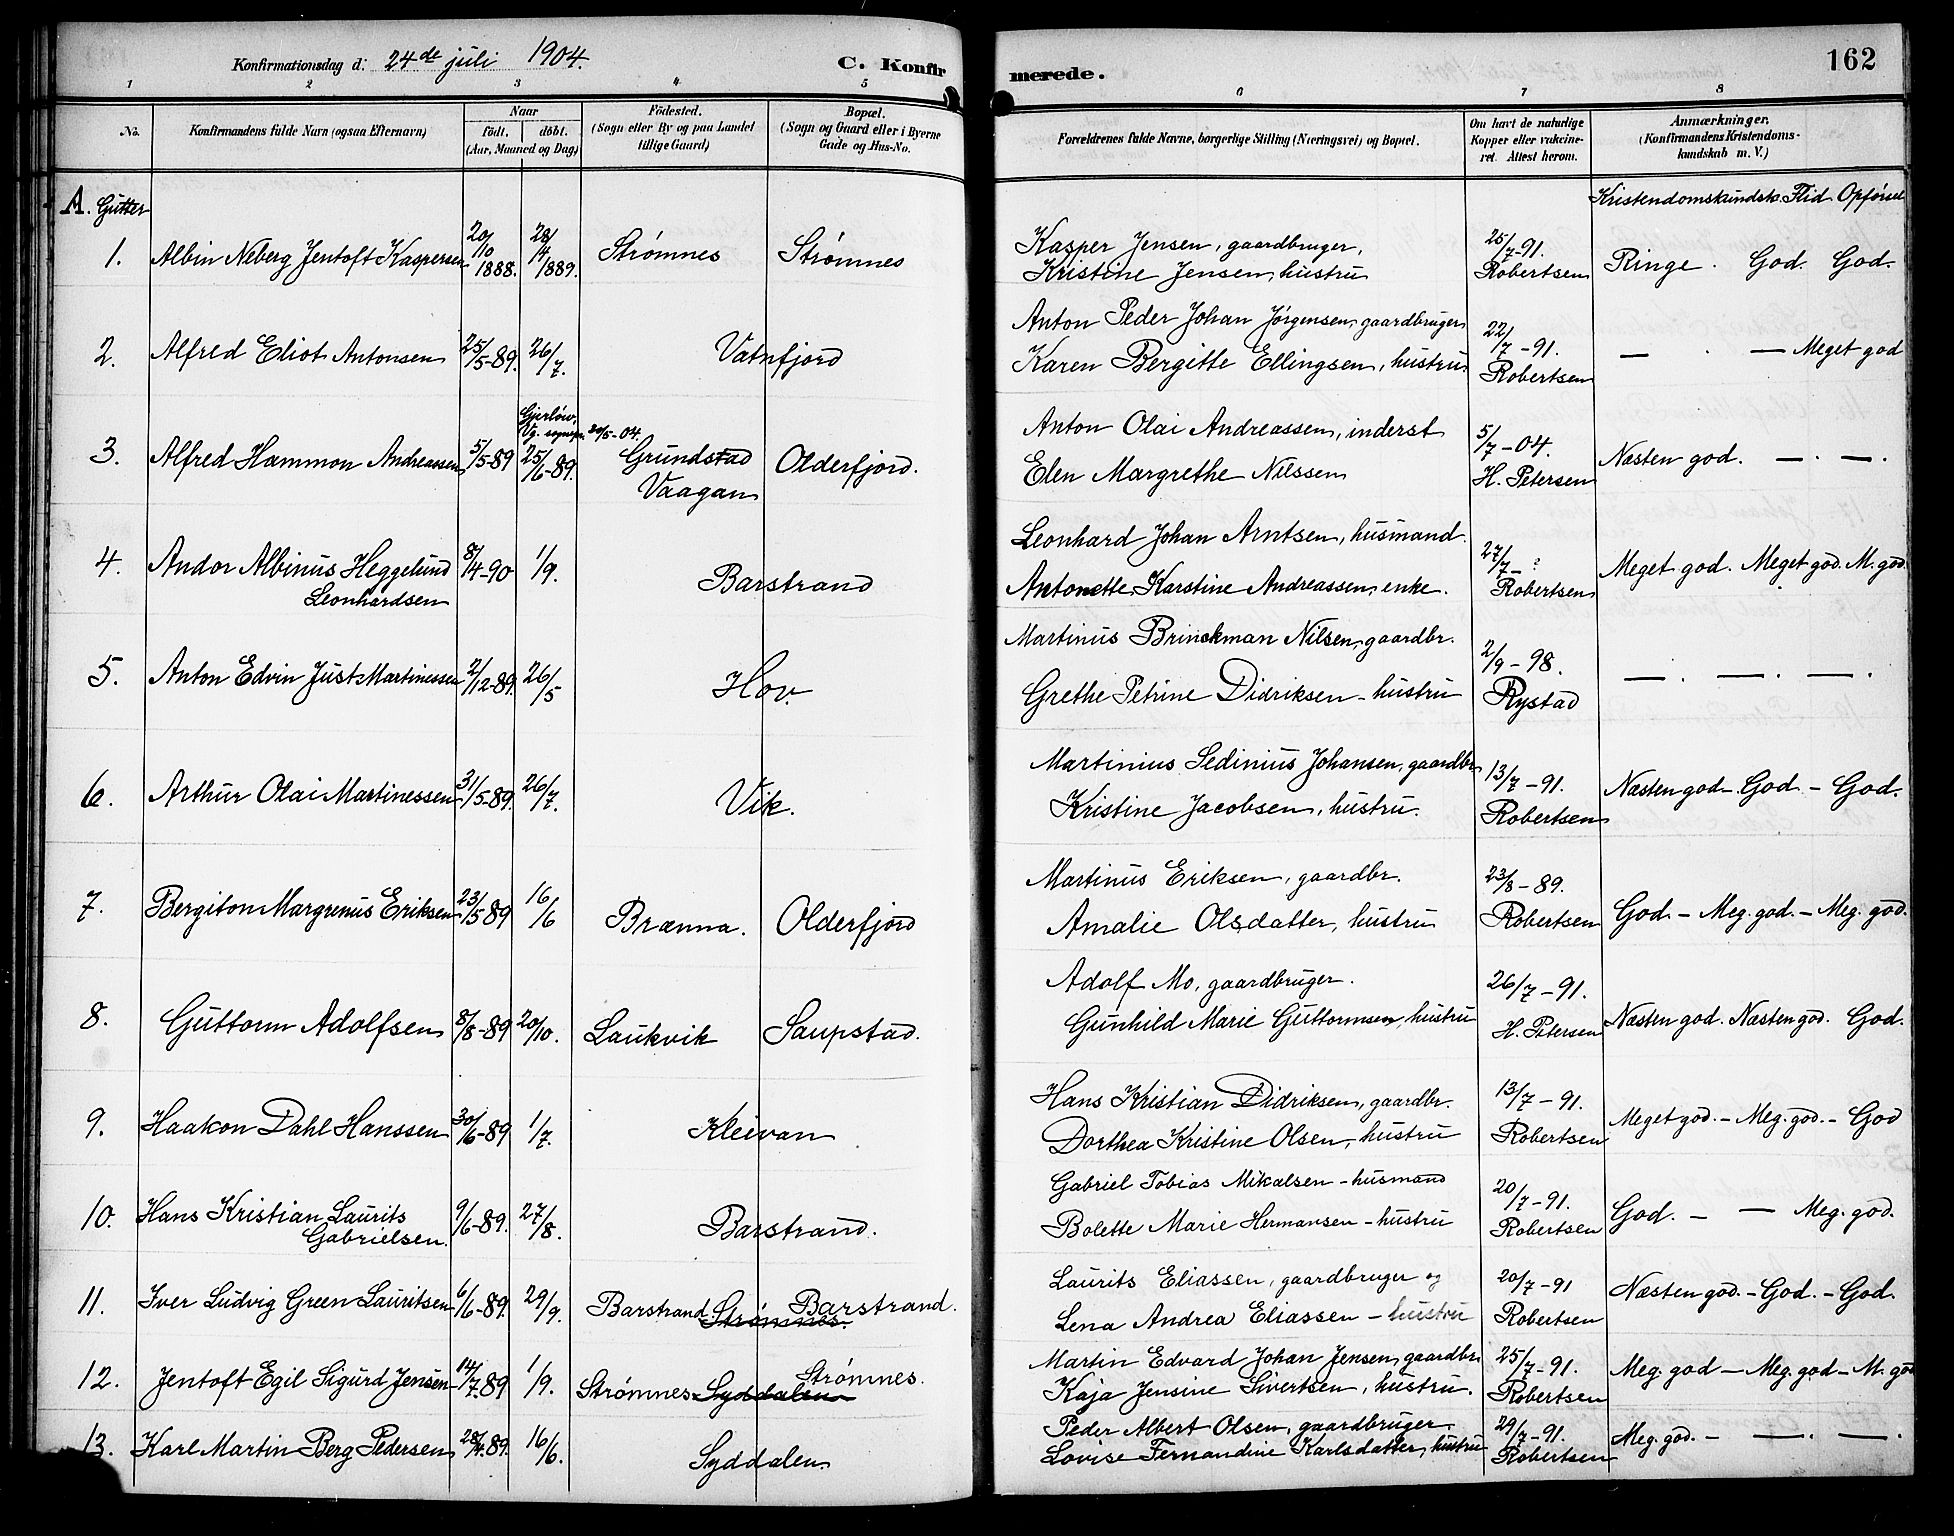 Konfirmationsdag d: 24de juli 1904.
C. Konfirmerede.
162
1 2 3 4 5 6 7 8
No. Konfirmandens fulde Navn (ogsaa Efternavn) Naar födt. döbt. (Aar, Maaned og Dag) Födested. (Sogn eller By og paa Landet tillige Gaard) Bopæl. (Sogn og Gaard eller i Byerne Gade og Hus-No. Forældrenes fulde Navne, borgerlige Stilling (Næringsvei) og Bopæl. Om havt de naturlige Kopper eller vakcineret. Attest herom. Anmærkninger. (Konfirmandens Kristendomskundskab m. V.)
A. Gutter
Kristendomskundsk. Flid Opførsel
1. Albin Neberg Jentoft Kaspersen 20/10 1888. 28/4 1889. Strømnes Strømnes Kasper Jensen, gaardbruger, 25/7-91. Ringe. God. God.
Kristine Jensen, hustru Robertsen
2. Alfred Eliot Antonsen 25/5-89. 26/7. Vatnfjord Anton Peder Johan Jørgensen, gaardbruger 22/7-91. — . — Meget god
Karen Bergitte Ellingsen, hustru Robertsen
3. Alfred Hammon Andreassen 5/5-89 25/6-89. Grundstad Olderfjord. Anton Olai Andreassen, inderst 5/7-04. Næsten god. — . — .
Vaagan Elen Margrethe Nilssen H. Petersen
4. Andor Albinus Heggelund 8/4-90 1/9. Barstrand Leonhard Johan Arntsen, husmand. 27/7-? Meget god. Meget god. M. god.
Leonhardsen Antonette Karstine Andreassen, enke. Robertsen
5. Anton Edvin Just Martinessen 2/12-89. 26/5 Hov. Martinus Brinckman Nilsen, gaardbr. 2/9-98. — . — . — .
Grethe Petrine Didriksen - hustru Rystad
6. Arthur Olai Martinessen 31/5-89. 26/7. Vik. Martinius Sedinius Johansen, gaardbr. 13/7-91. Næsten god - God - God.
Kristine Jacobsen, hustru. Robertsen
7. Bergiton Margrenus Eriksen 23/5-89 16/6 Brænna. Olderfjord Martinus Eriksen, gaardbr. 23/8-89. God. - Meg. god. - Meg. god.
Amalie Olsdatter, hustru Robertsen
8. Guttorm Adolfsen 8/8-89 20/10. Laukvik Saupstad. Adolf Mo, gaardbruger. 26/7-91. Næsten god. Næsten god. God.
Gunhild Marie Guttormsen, hustru H. Petersen
9. Haakon Dahl Hanssen 30/6-89 1/7. Kleivan Hans Kristian Didriksen, gaardbr. 13/7-91. Meget god. - Meg. god. - God
Dorthea Kristine Olsen, hustru Robertsen
10. Hans Kristian Laurits 9/6-89. 27/8. Barstrand. Gabriel Tobias Mikalsen - husmand 20/7-91. God. - — Meg. god.
Gabrielsen. Bolette Marie Hermansen - hustru Robertsen
11. Iver Ludvig Green Lauritsen 6/6-89. 29/9. Barstrand Strømnes. Barstrand. Laurits Eliassen, gaardbruger og 20/7-91 Næsten god. - God. - God.
Lena Andrea Eliassen - hustru Robertsen
12. Jentoft Egil Sigurd Jensen 14/7-89 1/9. Strømnes Syddalen Strømnes. Martin Edvard Johan Jensen, gaardbr. 25/7-91. Meg. god - Meg. god - M. god
Kaja Jensine Sivertsen, hustru. Robertsen
13. Karl Martin Berg Pedersen 28/4-89. 16/6. Syddalen. Peder Albert Olsen, gaardbruger 29/7-91. Meg. god. - — . — .
Lovise Fernandine Karlsdatter, hustru Robertsen